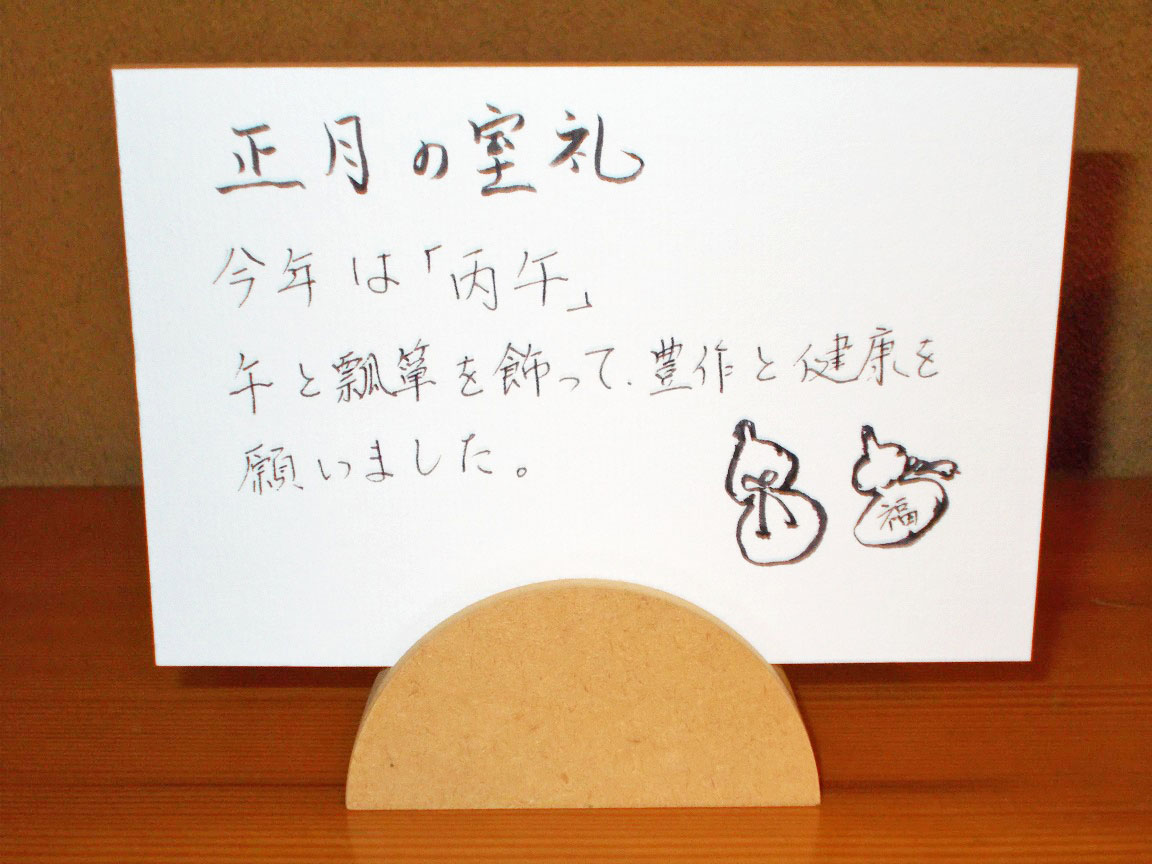 正月の室礼
今年は「丙午」
午と瓢箪を飾って、豊作と健康を
願いました。
福